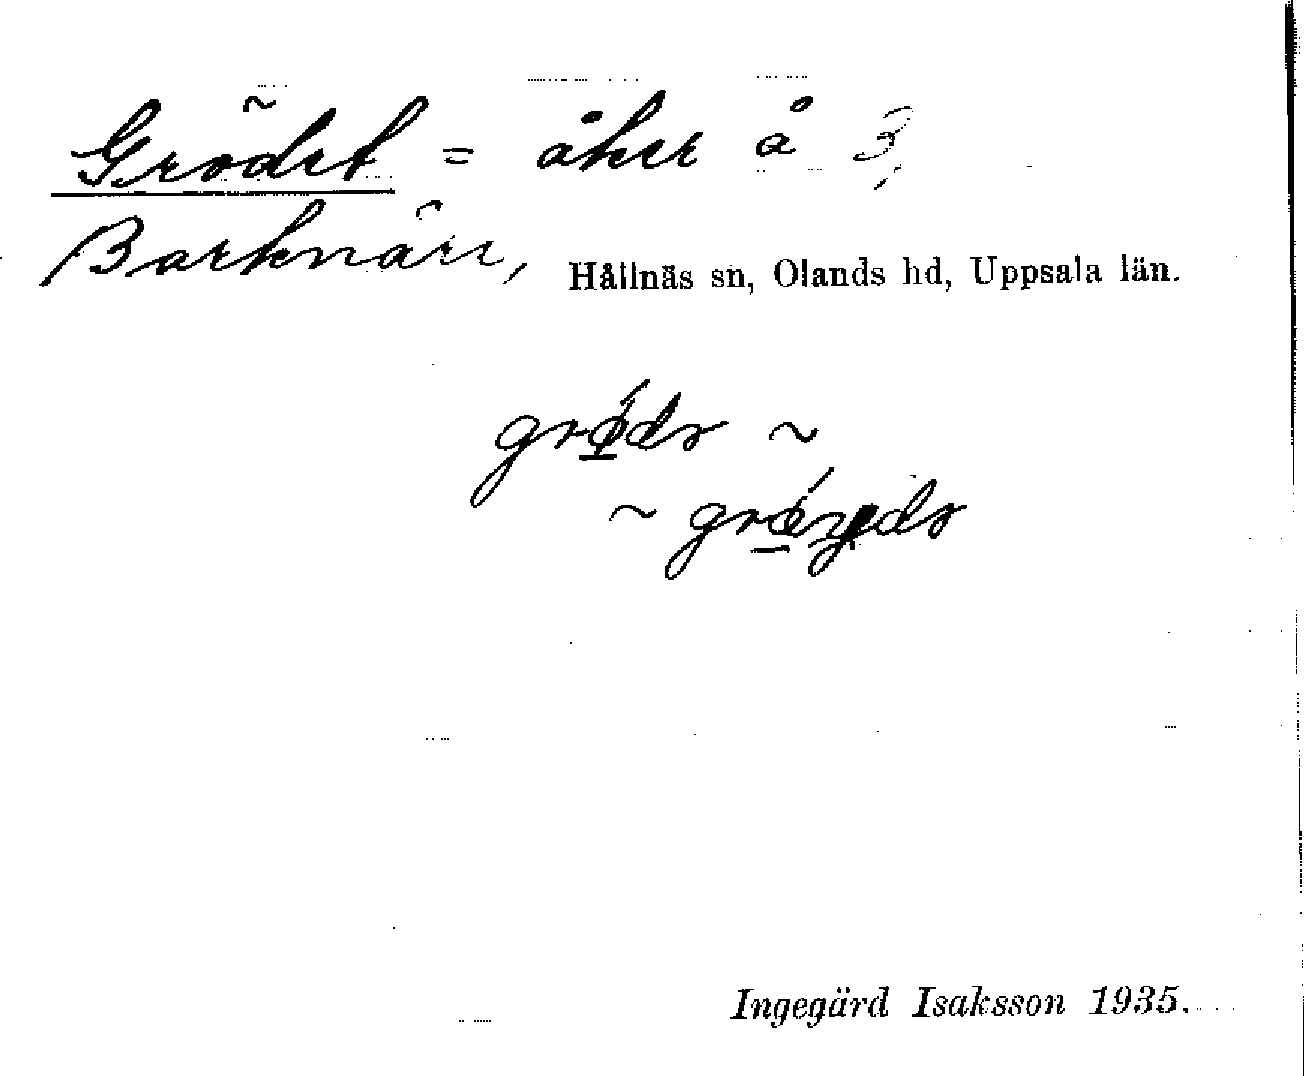 Grödet = åker å 3,
Barknäre, Hållnäs sn, Olands hd, Uppsala län.
grǿ̱dɞ ~
~
Ingegärd Isaksson 1935.